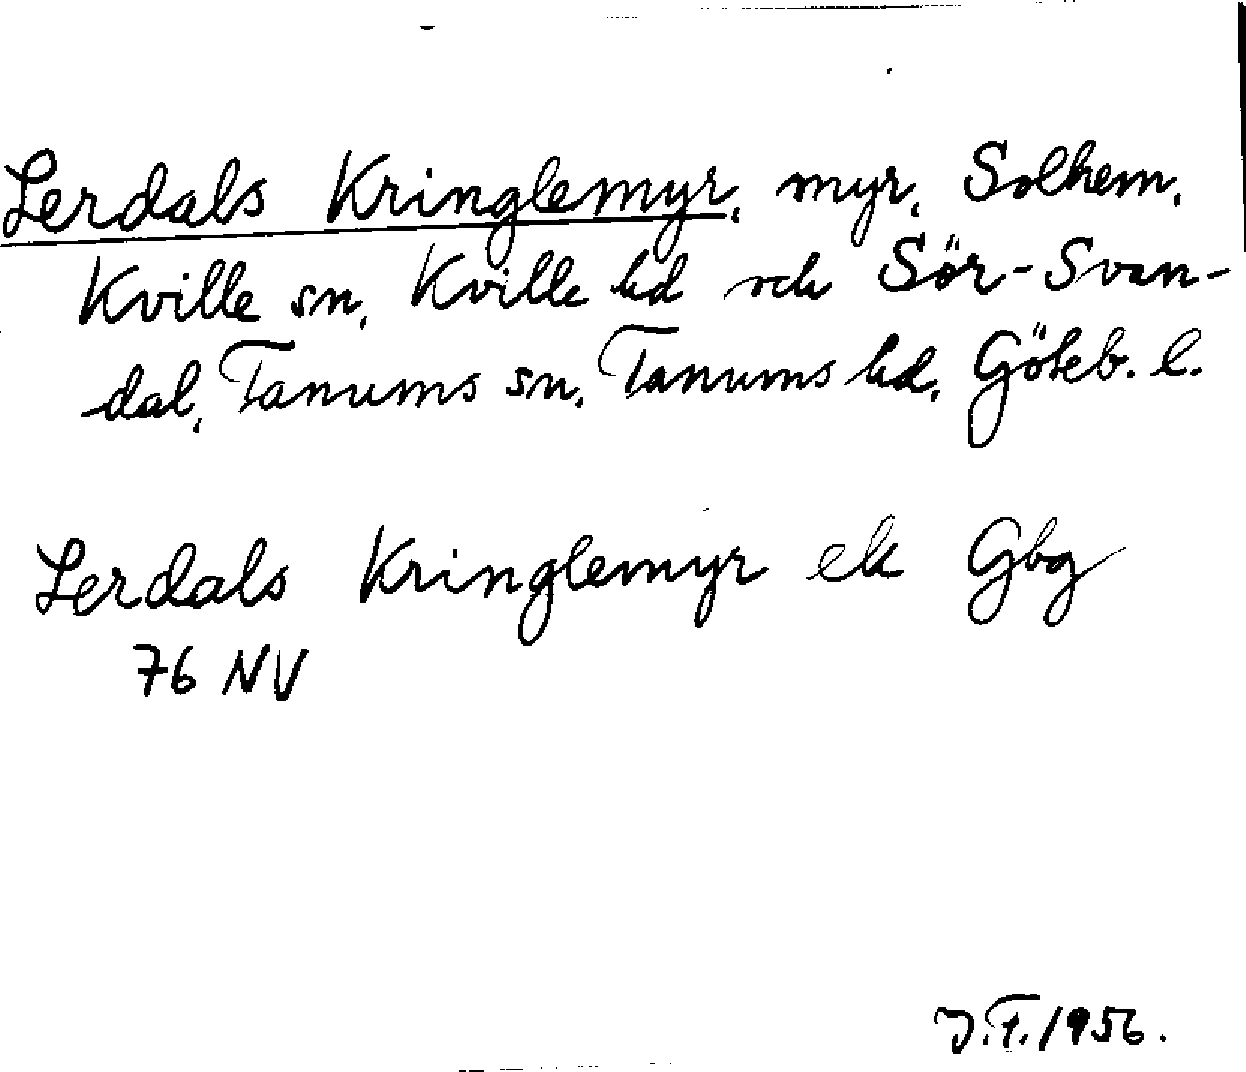 Lerdals Kringlemyr, myr, Solhem,
Kville sn, Kville hd och Sör-Svan-
dal, Tanums sn, Tanums hd, Göteb. l.
Lerdals Kringlemyr ek Gbg
76 NV
J.F. 1956.